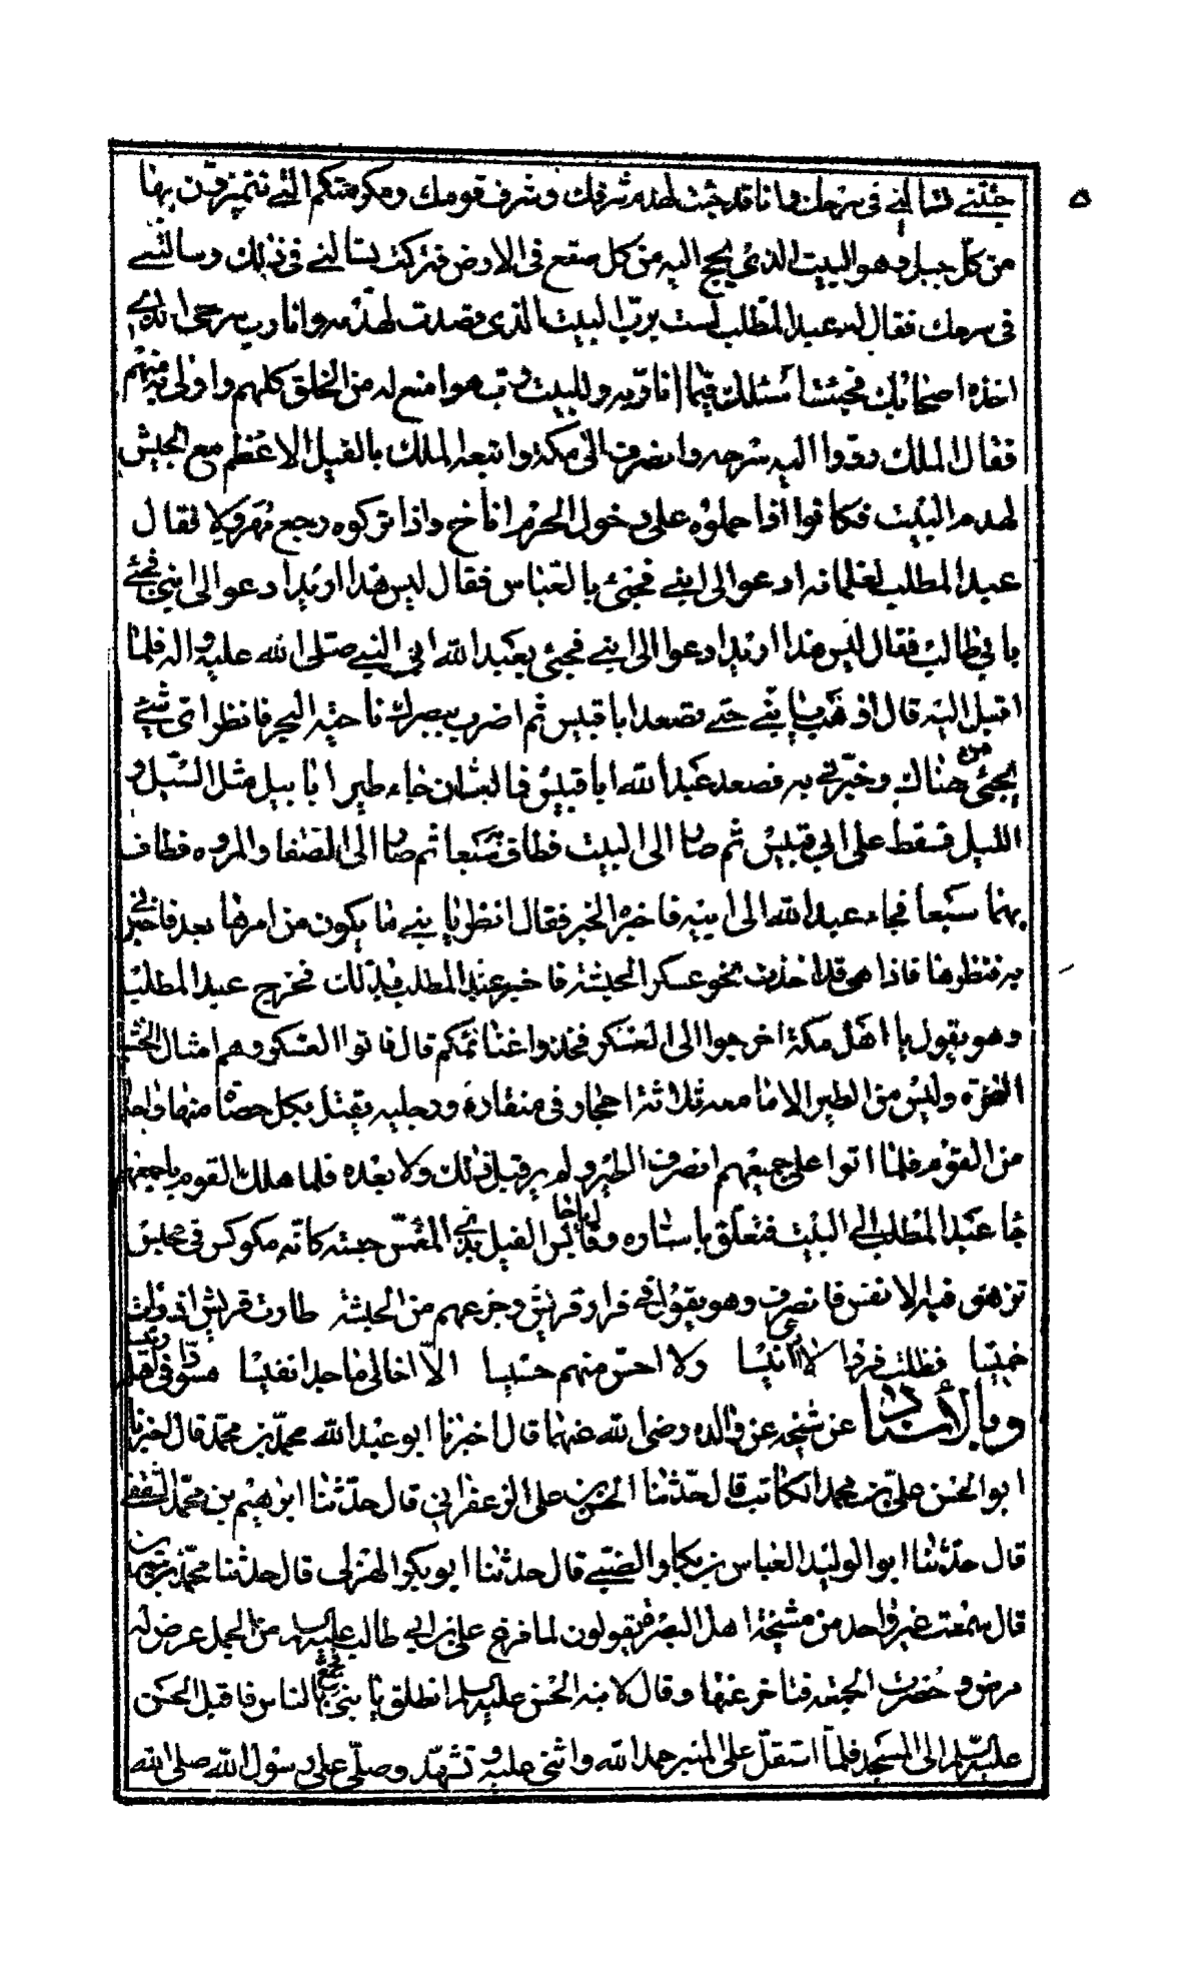 جئتني تسالني في سرحك وانا قد جئت لهدم شرفك وشرف قومك ومكرمتكم التي تتميزون بها
من كل جيل وهو البيت الذي يحج اليه من كل صقع في الارض فتركت تسالني في ذلك وسالتني
في سرحك فقال له عبد المطلب لست برب البيت الذي قصدت لهدمه وانا رب سرحي الذي
اخذه اصحابك فجئت اسئلك فيما انا ربه وللبيت رب هو امنع له من الخلق كلهم واولى به منهم
فقال الملك ردوا اليه سرحه وانصرف الى مكة واتبعه الملك بالفيل الاعظم مع الجيش
لهدم البيت فكانوا اذا حملوه على دخول الحرم اناخ واذا تركوه رجع مهرولا فقال
عبد المطلب لغلمانه ادعوا لي ابني فجئ بالعباس فقال ليس هذا اريد ادعوا لي ابني فجئ
بابي طالب فقال ليس هذا اريد ادعوا لي ابني فجئ بعبد الله ابي النبي صلى الله عليه واله فلما
اقبل اليه قال اذهب يا بني حتى تصعد ابا قبيس ثم اضرب ببصرك ناحية البحر فانظر اي شئ
يجئ من هناك وخبرني به فصعد عبد الله ابا قبيس فما لبث ان جاء طير ابابيل مثل السيل و
الليل فسقط على ابي قبيس ثم صار الى البيت فطاف سبعا ثم صار الى الصفا والمروه فطاف
بهما سبعا فجاء عبد الله الى ابيه فاخبره الخبر فقال انظر يا بني ما يكون من امرها بعد فاخبرني
به فنظرها فاذا هي قد اخذت نحو عسكر الحبشة فاخبر عبد المطلب بذلك فخرج عبد المطلب
وهو يقول يا اهل مكة اخرجوا الى العسكر فخذوا غنائمكم قال فاتوا العسكر وهم امثال الخشب
النخرة وليس من الطير الا ما معه ثلاثة احجار في منقاره ورجليه يقتل بكل حصاة منها واحدا
من القوم فلما اتوا على جميعهم انصرف الطير ولم ير قبل ذلك ولا بعده فلما هلك القوم باجمعهم
جا عبد المطلب الى البيت فتعلق باستاره وقال يا حابس الفيل بذي المغمس حبسته كانه مكوكس في مجلس
تزهق فيه الانفس فانصرف وهو يقول في فرار قريش وجزعهم من الحبشة طارت قريش اذ رات
خميسا فظلت فردا لا ارى انيسا ولا احس منهم حسيسا الا اخا لي ماجدا نفيسا مسودا في اهله رئيسا
وبالاسناد عن شيخه عن والده رضى الله عنهما قال اخبرنا ابو عبد الله محمد بن محمد قال اخبرنا
ابو الحسن علي بن محمد الكاتب قال حدثنا الحسن بن علي الزعفراني قال حدثنا ابرهيم بن محمد الثقفي
قال حدثنا ابو الوليد العباس بن بكار الضبي قال حدثنا ابو بكر الهذلي قال حدثنا محمد بن سيرين
قال سمعت غير واحد من مشيخة اهل البصرة يقولون لما فرغ علي بن ابي طالب عليه السلم من الجمل عرض له
مرض وحضرت الجمعة فتاخر عنها وقال لابنه الحسن عليه السلم انطلق يا بني فجمع بالناس فاقبل الحسن
عليه السلم الى المسجد فلما استقل على المنبر حمد الله واثنى عليه وتشهد وصلى على رسول الله صلى الله